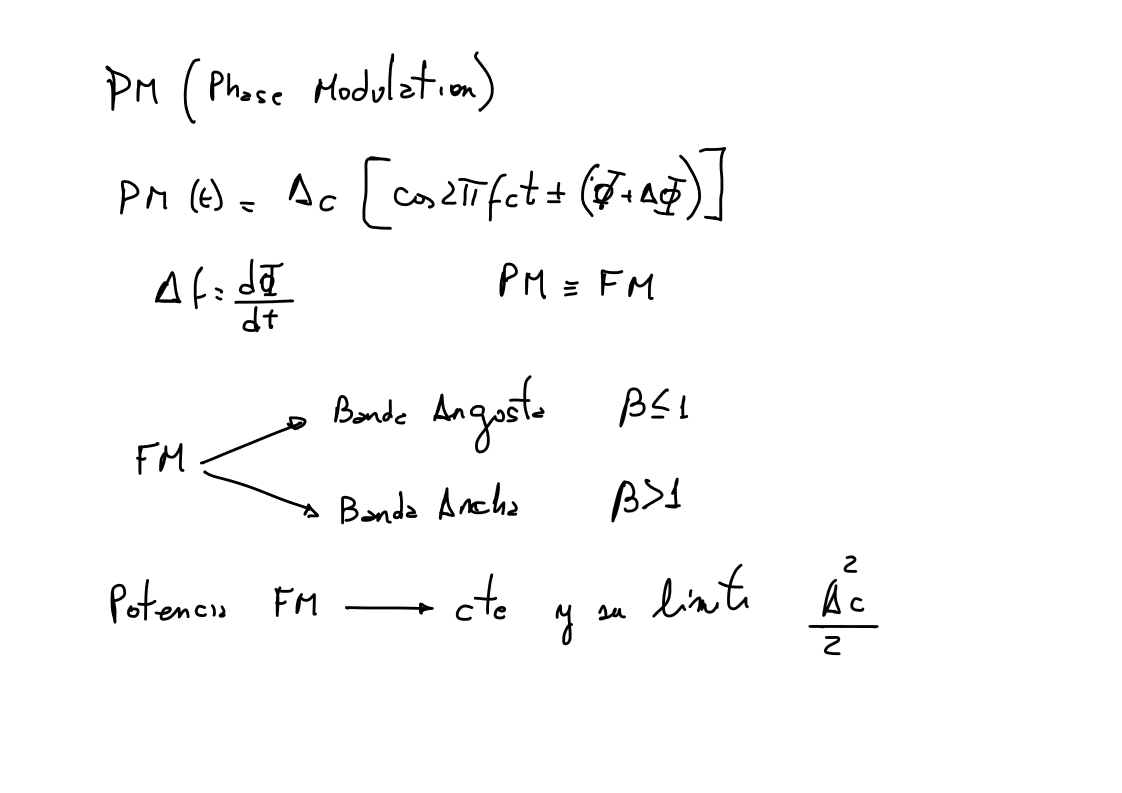 PM (Phase Modulation)
PM (t) = Ac [cos 2πfct ± (Φ + ΔΦ)]
Δf = dΦ/dt PM ≡ FM
Banda Angosta β ≤ 1
FM
Banda Ancha β > 1
Potencia FM → cte y su límite Ac²/2